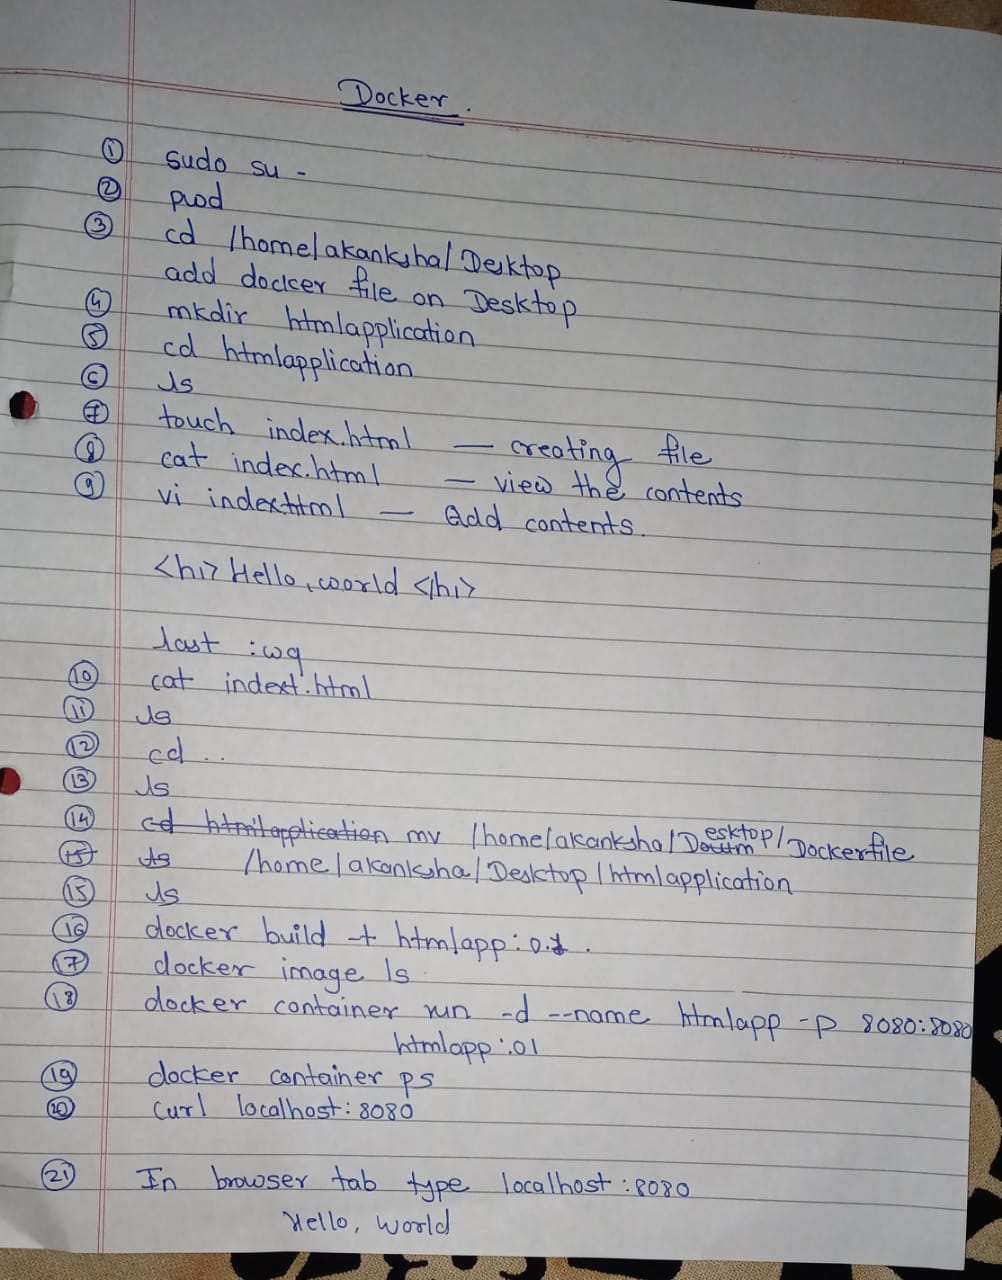 Docker.
① sudo su -
② pwd
③ cd /home/akanksha/Desktop
add docker file on Desktop
④ mkdir htmlapplication
⑤ cd htmlapplication
⑥ ls
⑦ touch index.html — creating file
⑧ cat index.html — view the contents
⑨ vi index.html — Add contents.
<h1> Hello, world </h1>
last :wq
⑩ cat indext.html
⑪ ls
⑫ cd ..
⑬ ls
⑭ cd htmlapplication mv /home/akanksha/Desktop/Dockerfile
⑮ ls /home/akanksha/Desktop/htmlapplication
⑮ ls
⑯ docker build -t htmlapp:0.1 .
⑰ docker image ls
⑱ docker container run -d --name htmlapp -p 8080:8080
htmlapp:.01
⑲ docker container ps
⑳ curl localhost:8080
㉑ In browser tab type localhost:8080
Hello, world